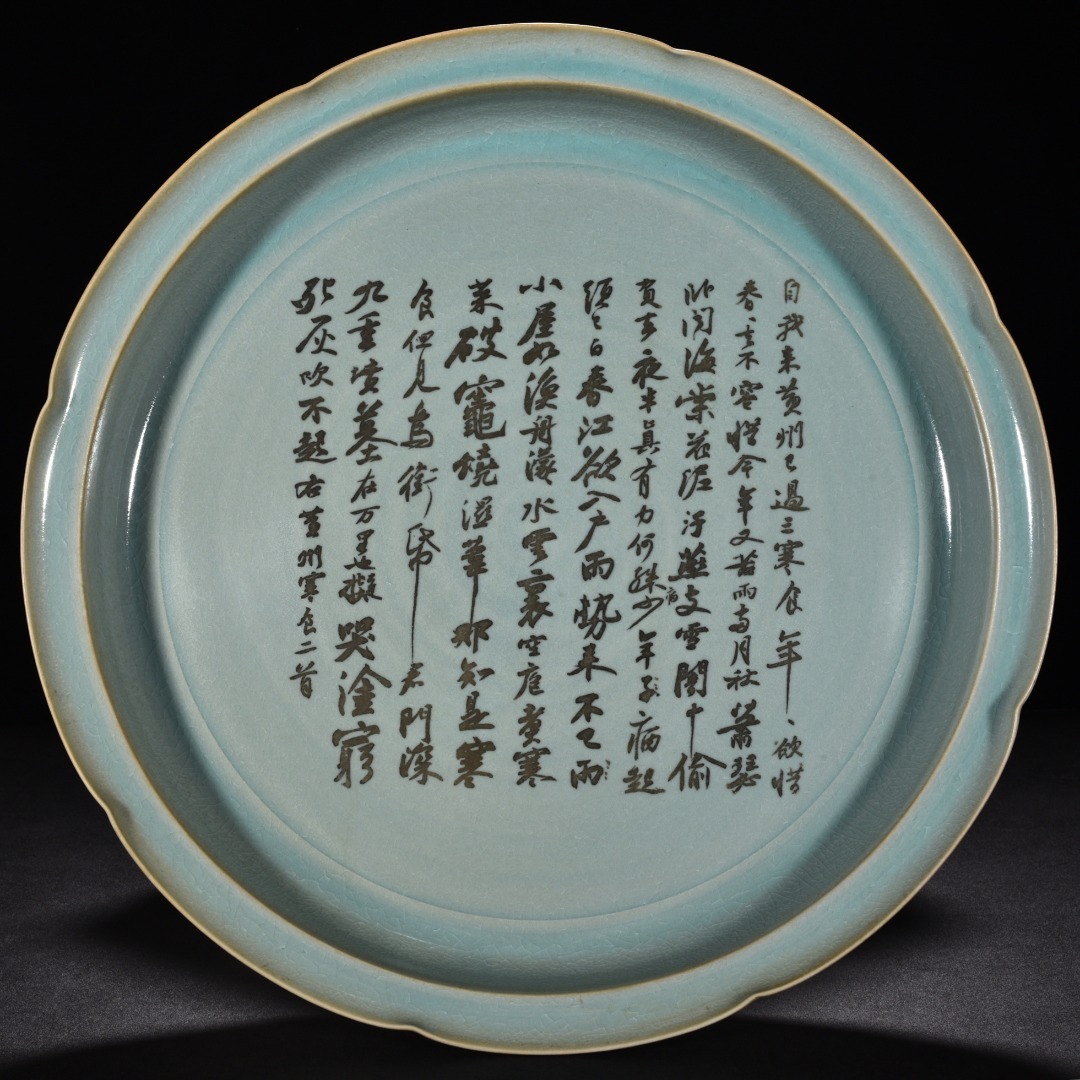 自我来黄州已過三寒食年〻欲惜
春〻去不容惜今年又苦雨兩月秋蕭瑟
卧聞海棠花泥汙燕支雪闇中偷
負去夜半真有力何殊少年子〻病起
頭已白春江欲入户雨勢来不已雨
小屋如漁舟濛〻水雲裏空庖煑寒
菜破竈燒濕葦那知是寒
食但見烏銜帋君門深
九重墳墓在万里也擬哭塗窮
死灰吹不起右黄州寒食二首